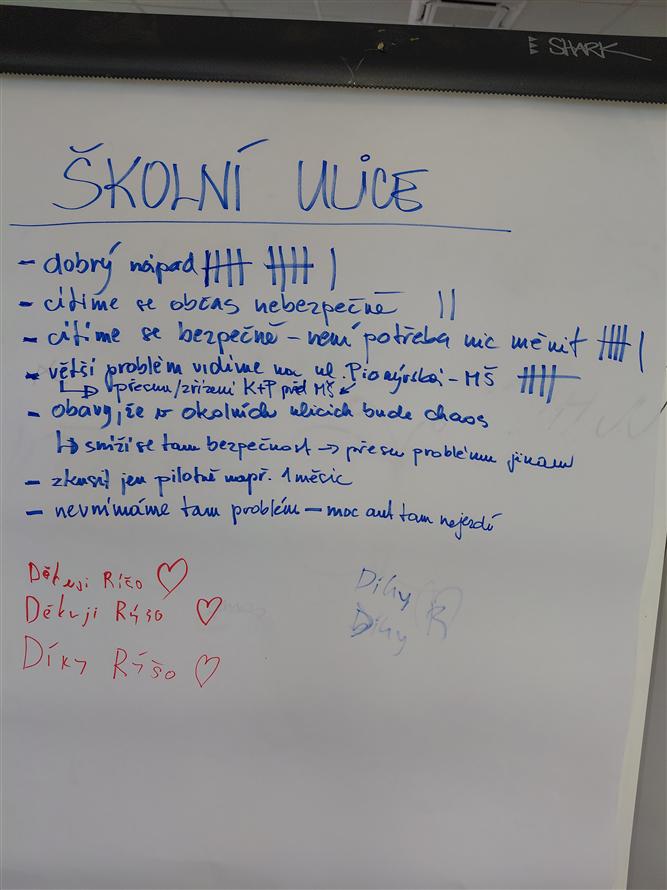 SHARK
ŠKOLNÍ ULICE
- dobrý nápad |||| |||| |
- cítíme se občas nebezpečně ||
- cítíme se bezpečně - není potřeba nic měnit |||| |
- větší problém vidíme na ul. Pionýrská - MŠ ||||
↳ přesun/zřízení K+P před MŠ
- obavy, že v okolních ulicích bude chaos
↳ sníží se tam bezpečnost → přesun problému jinam
- zkusit jen pilotně např. 1 měsíc
- nevnímáme tam problém - moc aut tam nejezdí
Děkuji Ríšo ♡
Děkuji Rýšo ♡
Díky Rýšo ♡
Díky
Díky R